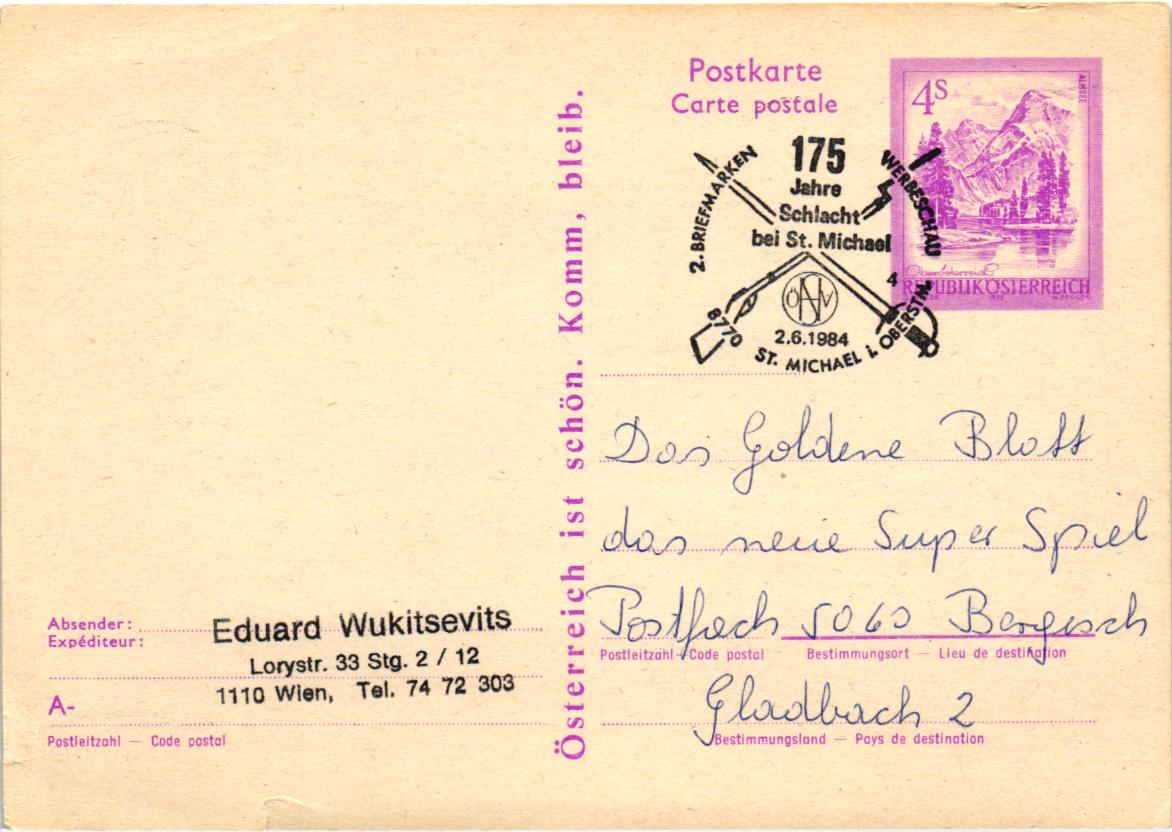 Postkarte
Carte postale
4S
ALMSEE
Oberösterreich
REPUBLIK ÖSTERREICH
2. BRIEFMARKEN WERBESCHAU
175
Jahre
Schlacht
bei St. Michael
4
ÖNV
2.6.1984
8770 ST. MICHAEL i. OBERSTM.
Österreich ist schön. Komm, bleib.
Das Goldene Blatt
das neue Super Spiel
Postfach 5060 Bergisch
Postleitzahl – Code postal Bestimmungsort – Lieu de destination
Gladbach 2
Bestimmungsland – Pays de destination
Absender:
Expéditeur:
Eduard Wukitsevits
Lorystr. 33 Stg. 2 / 12
1110 Wien, Tel. 74 72 303
A-
Postleitzahl – Code postal